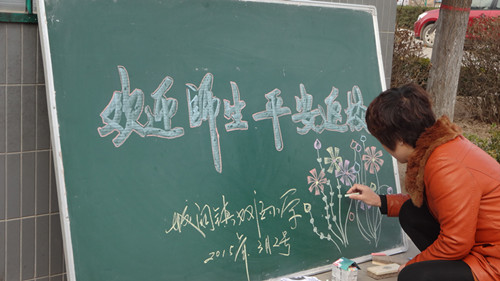 欢迎师生平安返校
城阳镇刘庄小学
2015年3月2号